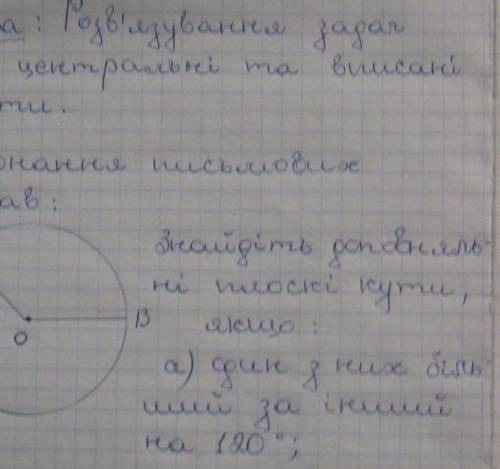 а: Розв'язування задач
центральні та вписані
ти.
онання письмових
ав:
Знайдіть доповняль-
ні плоскі кути,
якщо:
В
О
а) один з них біль-
ший за інший
на 120°;